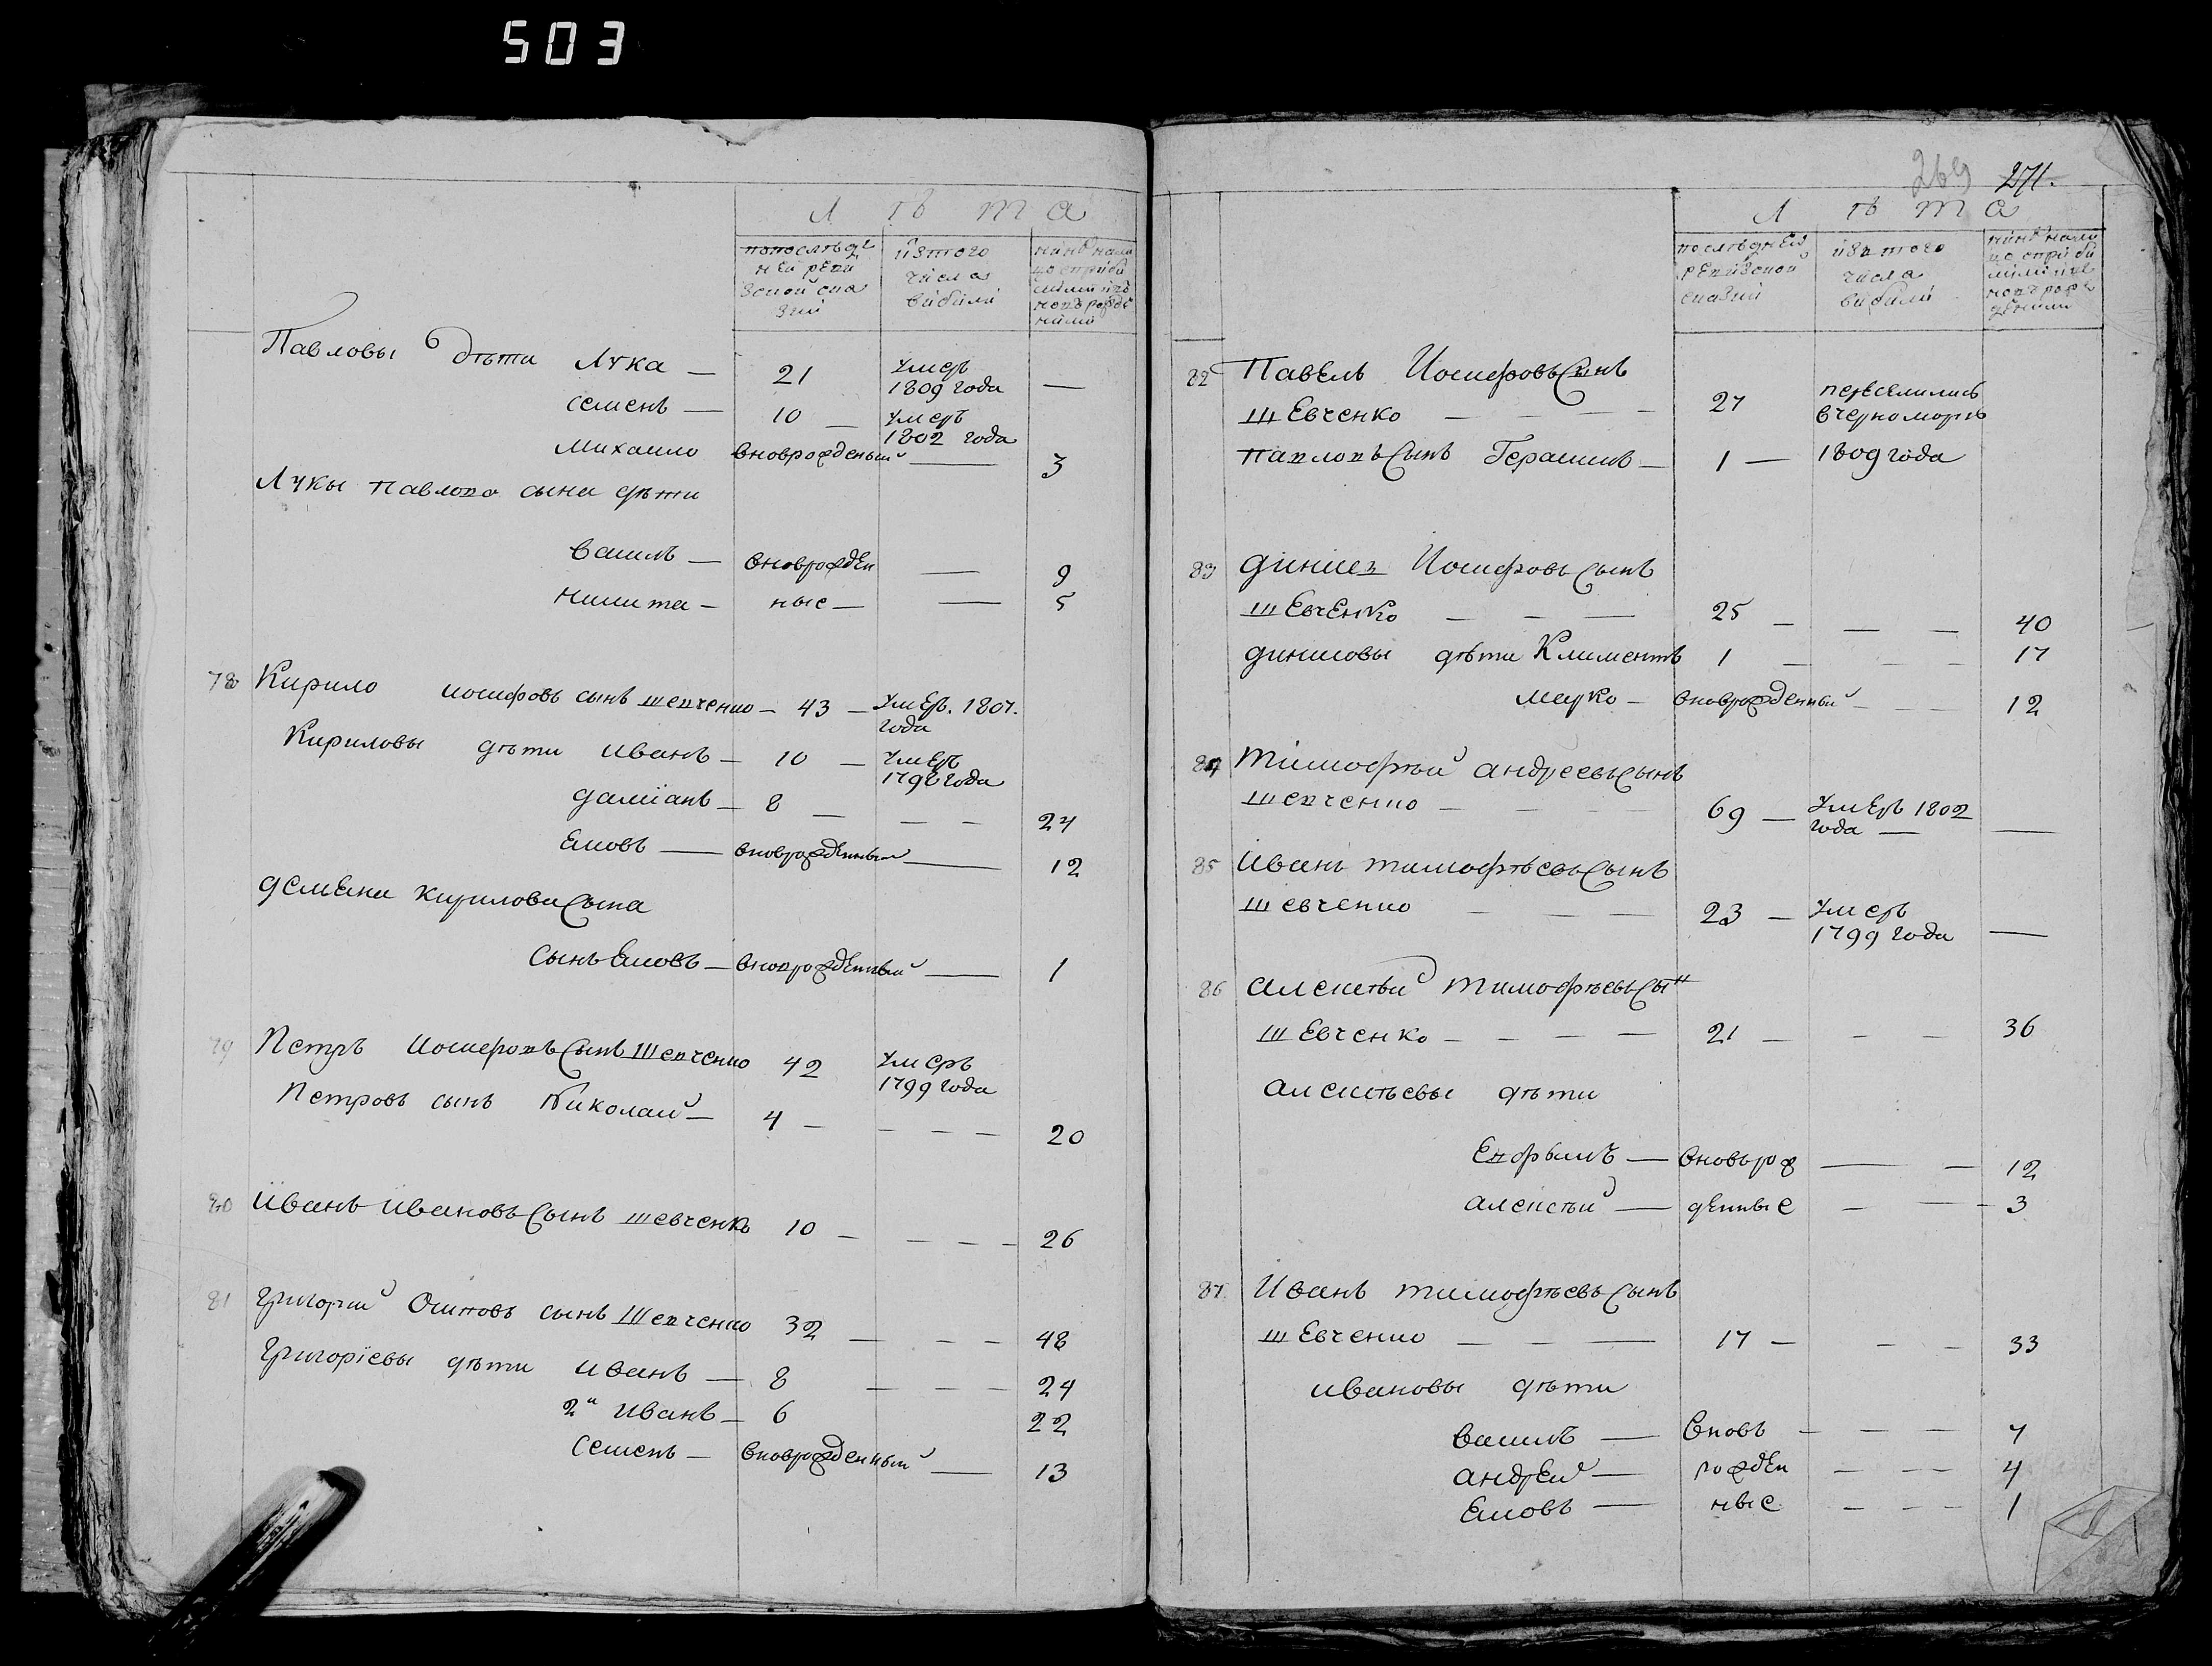 503
Л ѣ т а
попослѣд
ней реви
зской ска
зки
изтого
числа
выбыли
Павловы дѣти Лука — 21 умеръ —
1809 года
Семенъ — 10 — умеръ
1802 года
Михаило вноврожденый — 3
Луки Павлова сына дѣти
Василь — вноврожден — 9
Никита — ные — — 5
78 Кирило Иосифовъ сынъ Шевченко — 43 — умеръ. 1807.
года
Кириловы дѣти Иванъ — 10 — умеръ
1798 года
Дамiанъ — 8 — — — 24
Яковъ — вноврожденный — 12
Демяна Кирилова сына
Сынъ Яковъ — вноврожденный — 1
79 Петръ Иосифовъ Сынъ Шевченко 42 умеръ
1799 года
Петровъ сынъ Николай — 4 — — — — 20
80 Иванъ Ивановъ Сынъ Шевченко 10 — — — — 26
81 Григорий Осиповъ сынъ Шевченко 32 — — — 48
Григорiевы дѣти Иванъ — 8 — — — 24
2й Иванъ — 6 22
Семенъ — вноврожденный — 13
269 271.
Л ѣ т а
послѣдней
ревизской
сказки
изтого
числа
выбыли
82 Павелъ Иосифовъ Сынъ
Шевченко — — — 27 переселились
вчерноморiю
Павловъ Сынъ Герасимъ — 1 — 1809 года
83 Динисъ Иосифовъ Сынъ
Шевченко — — — 25 — — — 40
Динисовы дѣти Климентъ 1 — — — 17
Марко — вноврожденный — — — 12
84 Тимофѣй Андреевъ Сынъ
Шевченко — — — 69 — умеръ 1802
года — —
85 Иванъ Тимофѣевъ Сынъ
Шевченко — — — 23 — умеръ
1799 года —
86 Алексѣй Тимофѣевъ Сын
Шевченко — — — — 21 — — — 36
Алексѣевы дѣти
Ефримъ — вновьрож — — 12
Алексѣй — денные — — 3
87 Иванъ Тимофѣевъ Сынъ
Шевченко — — — 17 — — — 33
Ивановы дѣти
Василь — вновь — — — 7
Андрей — рожден — — — 4
Яковъ — ные — — — 1